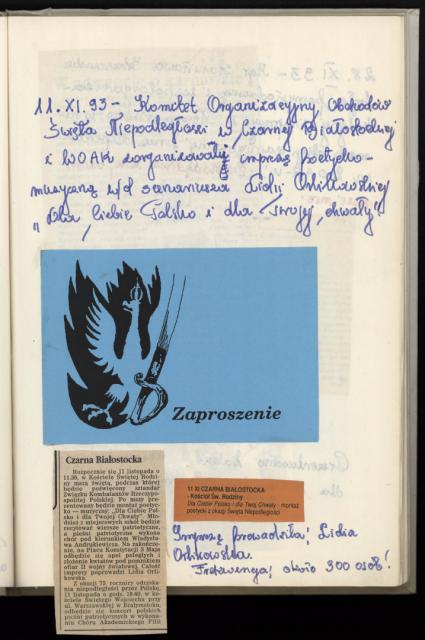 11.XI.93 - Komitet Organizacyjny Obchodów
Święta Niepodległości w Czarnej Białostockiej
i WOAK zorganizowały imprę poetycko-
muzyczną wg scenariusza Lidii Orlikowskiej
"Dla Ciebie Polsko i dla Twojej chwały".
Zaproszenie
Czarna Białostocka
Rozpocznie się 11 listopada o
11.30, w Kościele Świętej Rodzi-
ny mszą świętą, podczas której
będzie poświęcony sztandar
Związku Kombatantów Rzeczypo-
spolitej Polskiej. Po mszy pre-
zentowany będzie montaż poetyc-
ko — muzyczny: „Dla Ciebie Pol-
sko i dla Twojej Chwały". Mło-
dzież z miejscowych szkół będzie
recytować wiersze patriotyczne,
a pieśni patriotyczne wykona
chór pod kierunkiem Władysła-
wa Andrukiewicza. Na zakończe-
nie, na Placu Konstytucji 3 Maja
odbędzie się apel poległych i
złożenie kwiatów pod pomnikiem
ofiar II wojny światowej. Całość
imprezy poprowadzi Lidia Orli-
kowska.
Z okazji 75. rocznicy odzyska-
nia niepodległości przez Polskę,
11 listopada o godz. 18.40, w ko-
ściele Świętego Wojciecha przy
ul. Warszawskiej w Białymstoku,
odbędzie się koncert polskich
pieśni patriotycznych w wykona-
niu Chóru Akademickiego Filii
11 XI CZARNA BIAŁOSTOCKA
- Kościół Św. Rodziny
Dla Ciebie Polsko i dla Twej Chwały - montaż
poetycki z okazji Święta Niepodległości
Imprezę prowadziła: Lidia
Orlikowska.
Frekwencja: około 300 osób!